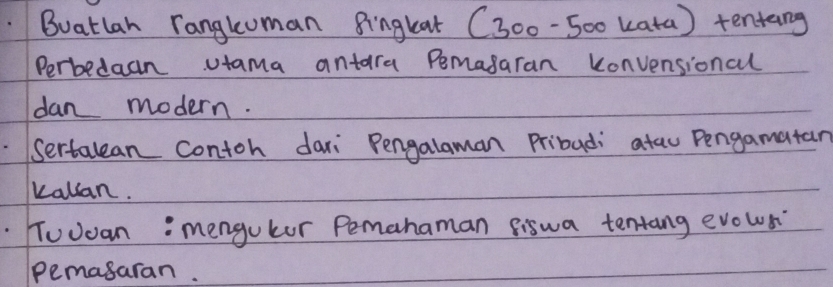 · Buatlah rangkuman singkat (300-500 kata) tentang
Perbedaan utama antara Pemasaran konvensional
dan modern.
· Sertakan contoh dari Pengalaman Pribadi atau Pengamatan
kalian.
· Tujuan : mengukur Pemahaman siswa tentang evolusi
pemasaran.